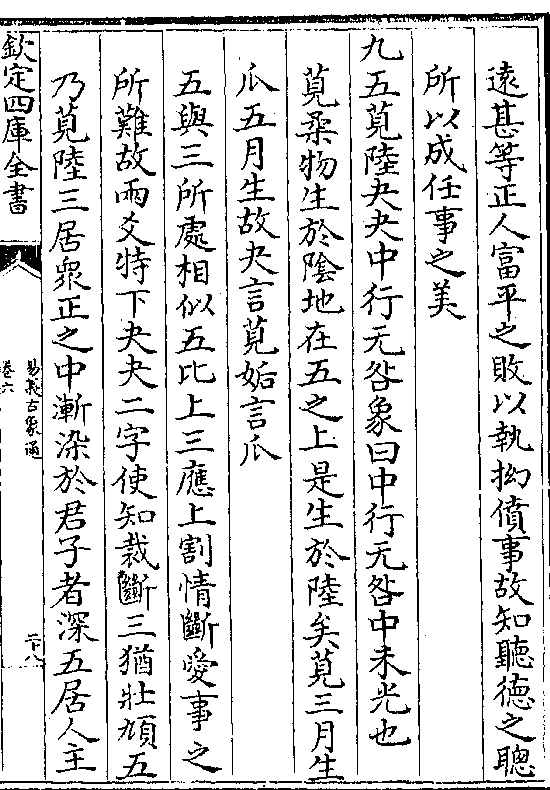 遠甚等正人富平之敗以執拗僨事故知聽徳之聰
所以成任事之美
九五莧陸夬夬中行无咎象曰中行无咎中未光也
莧柔物生於陰地在五之上是生於陸矣莧三月生
瓜五月生故夬言莧姤言瓜
五與三所處相似五比上三應上割情斷愛事之
所難故兩爻特下夬夬二字使知裁斷三猶壯頄五
乃莧陸三居衆正之中漸染於君子者深五居人主
欽定四庫全書
易義古象通
卷六
二十八